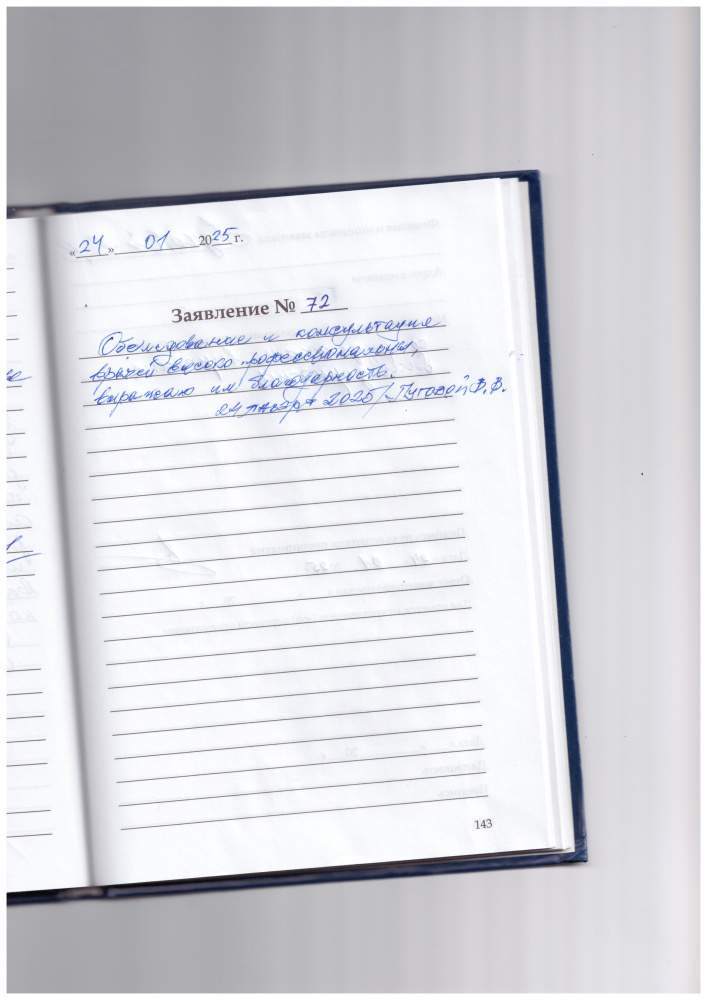 «24» 01 2025 г.
Заявление № 72
Обследование и консультация
врачей высоко профессиональны,
выражаю им благодарность.
24 января 2025 / Луговой В.В.
143